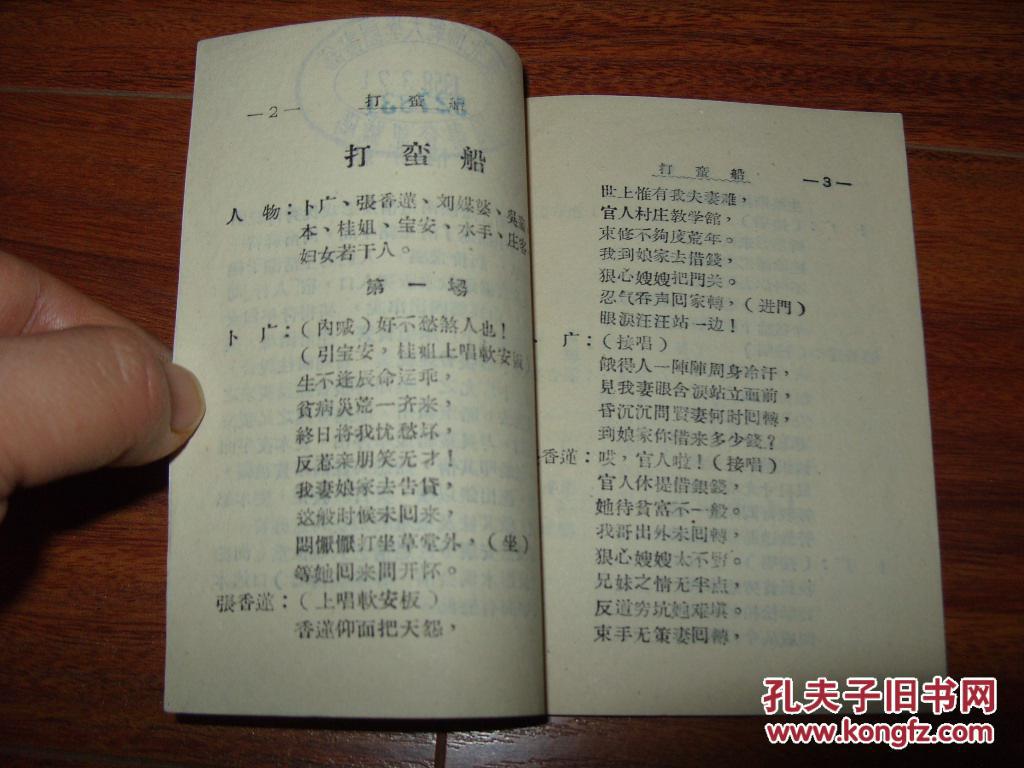 —2— 打蛮船
打蛮船
人 物：卜广、張香蓮、刘媒婆、吳
本、桂姐、宝安、水手、庄客
妇女若干人。
第一場
卜 广：（內喊）好不愁煞人也！
（引宝安，桂姐上唱軟安板）
生不逢辰命运乖，
貧病災荒一齐来，
終日将我忧愁坏，
反惹亲朋笑无才！
我妻娘家去告貸，
这般时候未囘来，
悶懨懨打坐草堂外，（坐）
等她囘来問开怀。
張香蓮：（上唱軟安板）
香蓮仰面把天怨，
打蛮船 —3—
世上惟有我夫妻难，
官人村庄教学館，
束修不夠度荒年。
我到娘家去借錢，
狠心嫂嫂把門关。
忍气吞声囘家轉，（进門）
眼淚汪汪站一边！
广：（接唱）
餓得人一陣陣周身冷汗，
見我妻眼含淚站立面前，
昏沉沉問賢妻何时囘轉，
到娘家你借来多少錢？
香蓮：哎，官人啦！（接唱）
官人休提借銀錢，
她待貧富不一般。
我哥出外未囘轉，
狠心嫂嫂太不賢。
兄妹之情无半点，
反道穷坑她难填。
束手无策妻囘轉，
孔夫子旧书网
www.kongfz.com